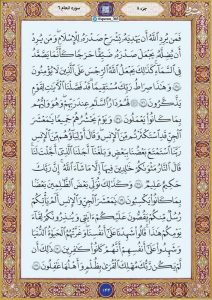 سوره انعام ٦
جزء ٨
فَمَن يُرِدِ اللَّهُ أَن يَهْدِيَهُ يَشْرَحْ صَدْرَهُ لِلْإِسْلَامِ وَمَن يُرِدْ
أَن يُضِلَّهُ يَجْعَلْ صَدْرَهُ ضَيِّقًا حَرَجًا كَأَنَّمَا يَصَّعَّدُ
فِي السَّمَاءِ كَذَٰلِكَ يَجْعَلُ اللَّهُ الرِّجْسَ عَلَى الَّذِينَ لَا يُؤْمِنُونَ
وَهَٰذَا صِرَاطُ رَبِّكَ مُسْتَقِيمًا قَدْ فَصَّلْنَا الْآيَاتِ لِقَوْمٍ
يَذَّكَّرُونَ لَهُمْ دَارُ السَّلَامِ عِندَ رَبِّهِمْ وَهُوَ وَلِيُّهُم
بِمَا كَانُوا يَعْمَلُونَ وَيَوْمَ يَحْشُرُهُمْ جَمِيعًا يَا مَعْشَرَ
الْجِنِّ قَدِ اسْتَكْثَرْتُم مِّنَ الْإِنسِ وَقَالَ أَوْلِيَاؤُهُم مِّنَ الْإِنسِ
رَبَّنَا اسْتَمْتَعَ بَعْضُنَا بِبَعْضٍ وَبَلَغْنَا أَجَلَنَا الَّذِي أَجَّلْتَ لَنَا
قَالَ النَّارُ مَثْوَاكُمْ خَالِدِينَ فِيهَا إِلَّا مَا شَاءَ اللَّهُ إِنَّ رَبَّكَ
حَكِيمٌ عَلِيمٌ وَكَذَٰلِكَ نُوَلِّي بَعْضَ الظَّالِمِينَ بَعْضًا
بِمَا كَانُوا يَكْسِبُونَ يَا مَعْشَرَ الْجِنِّ وَالْإِنسِ أَلَمْ يَأْتِكُمْ
رُسُلٌ مِّنكُمْ يَقُصُّونَ عَلَيْكُمْ آيَاتِي وَيُنذِرُونَكُمْ لِقَاءَ
يَوْمِكُمْ هَٰذَا قَالُوا شَهِدْنَا عَلَىٰ أَنفُسِنَا وَغَرَّتْهُمُ الْحَيَاةُ الدُّنْيَا
وَشَهِدُوا عَلَىٰ أَنفُسِهِمْ أَنَّهُمْ كَانُوا كَافِرِينَ ذَٰلِكَ أَن
لَّمْ يَكُن رَّبُّكَ مُهْلِكَ الْقُرَىٰ بِظُلْمٍ وَأَهْلُهَا غَافِلُونَ
١٤٤